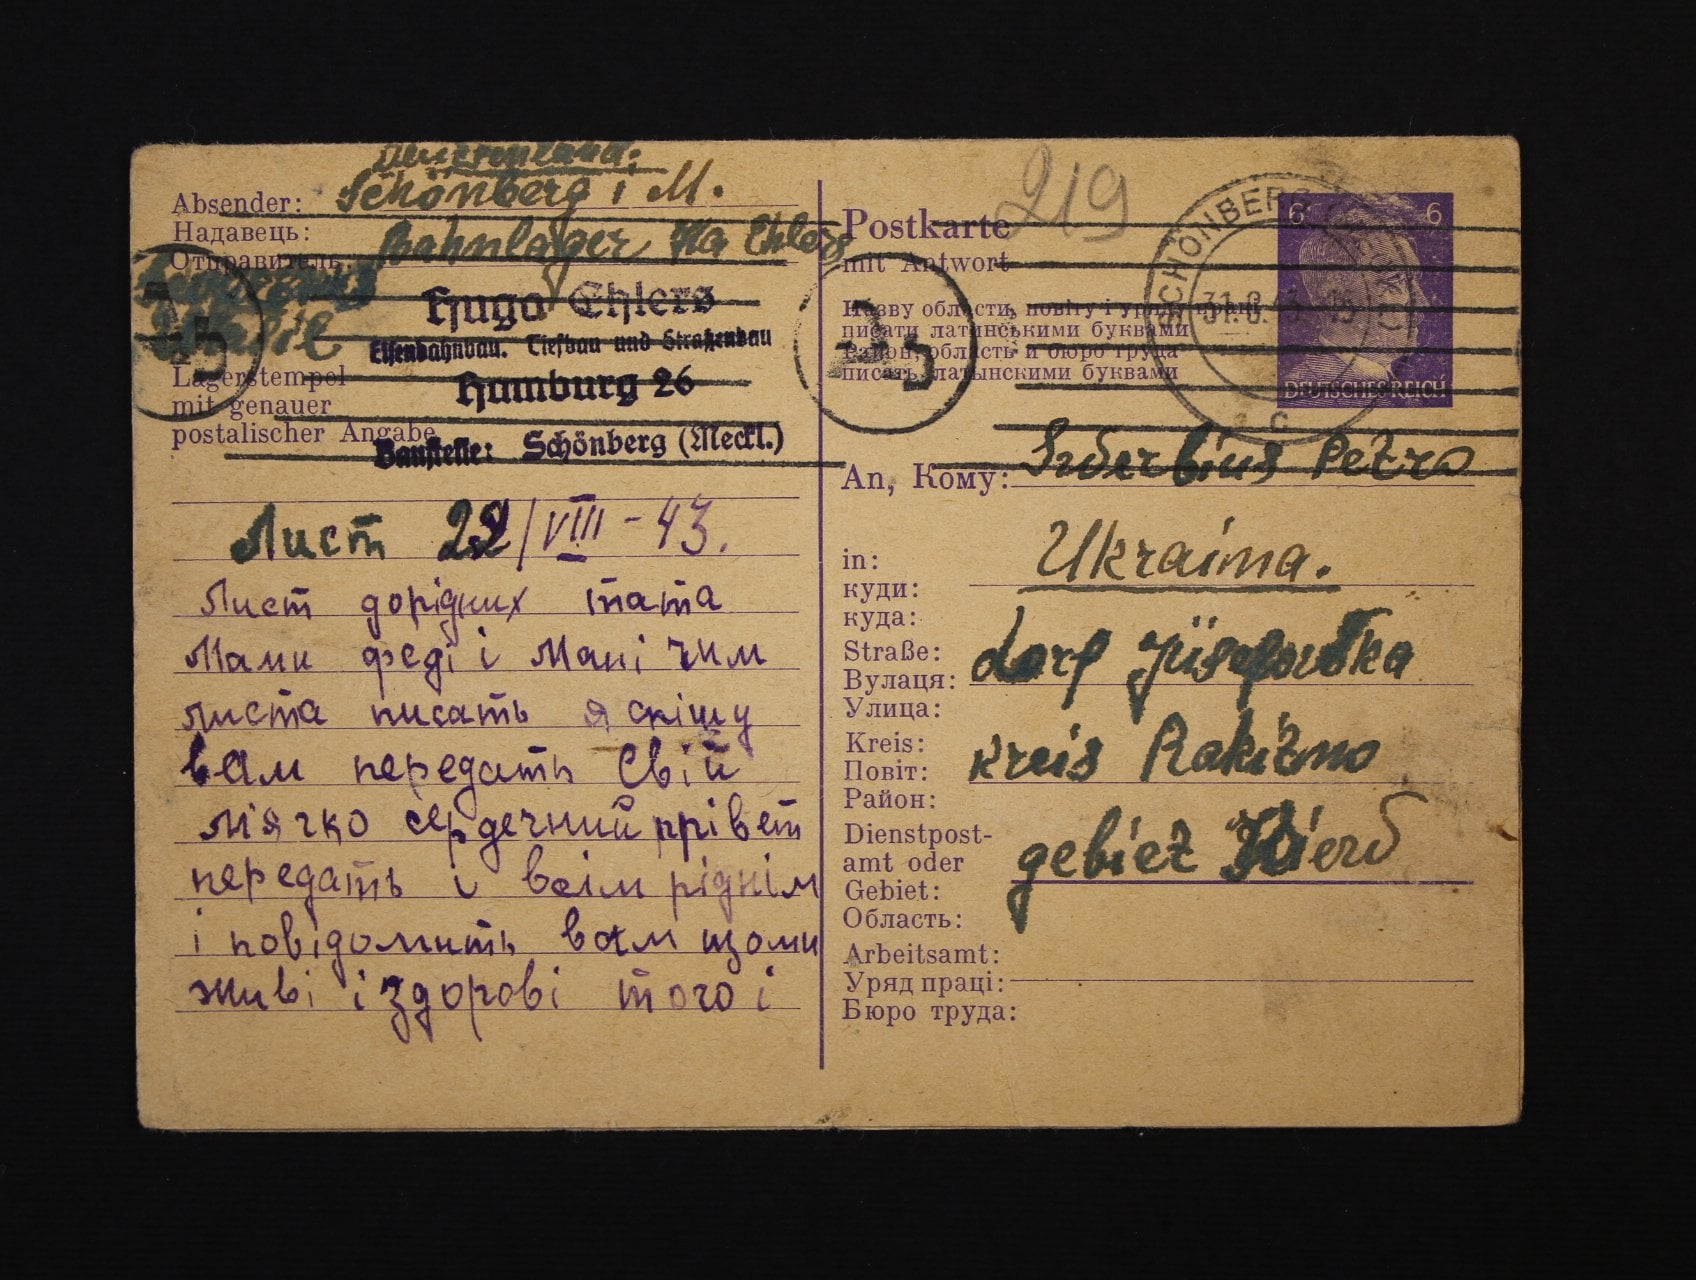 Schönberg i M.
Absender:
Надавець:
Отправитель:
Bahnlager Ha Ehlers
Hugo Ehlers
Eisenbahnbau. Tiefbau und Straßenbau
Hamburg 26
Baustelle: Schönberg (Meckl.)
Lagerstempel
mit genauer
postalischer Angabe
Лист 22/VIII-43.
Лист дорідних тата
Мами феді і Мані чим
листа писать я спішу
вам передать Свій
мягко сердечний прівет
передать і всімріднім
і повідомить вам щоми
живі і здорові того і
219
Postkarte
mit Antwort
Назву области, повіту і уряду праці
писати латинськими буквами
Район, область и бюро труда
писать латынскими буквами
SCHÖNBERG
31.8.43
6 6
DEUTSCHES REICH
An, Кому: Petro
in: Ukraina.
куди:
куда:
Straße: dorf
Вулаця:
Улица:
Kreis: kreis Rakitno
Повіт:
Район:
Dienstpost-
amt oder gebiet
Gebiet:
Область:
Arbeitsamt:
Уряд праці:
Бюро труда: